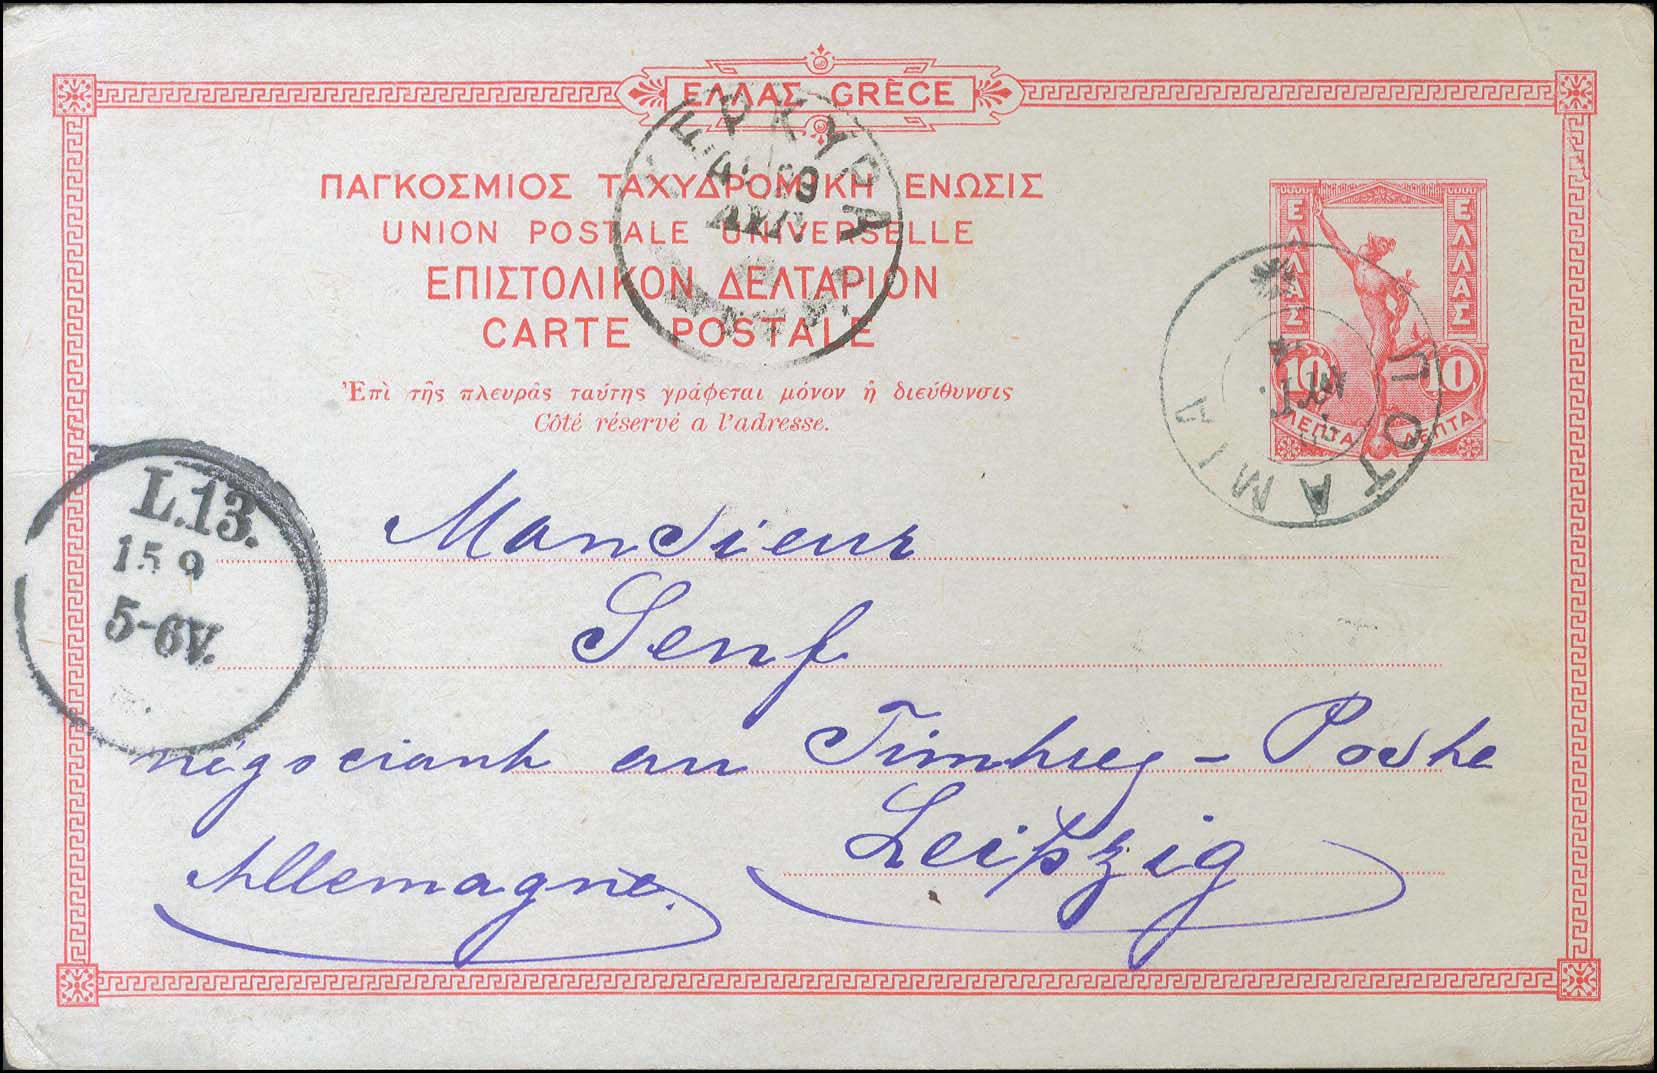 ΕΛΛΑΣ GRÈCE
ΠΑΓΚΟΣΜΙΟΣ ΤΑΧΥΔΡΟΜΙΚΗ ΕΝΩΣΙΣ
UNION POSTALE UNIVERSELLE
ΕΠΙΣΤΟΛΙΚΟΝ ΔΕΛΤΑΡΙΟΝ
CARTE POSTALE
Ἐπὶ τῆς πλευρᾶς ταύτης γράφεται μόνον ἡ διεύθυνσις
Côté réservé a l'adresse.
ΚΕΡΚΥΡΑ
ΑΥΓ.
ΕΛΛΑΣ
ΕΛΛΑΣ
10 10
ΛΕΠΤΑ ΛΕΠΤΑ
ΠΟΤΑΜΙΑ
L.13.
15 9
5-6V.
Monsieur
Senf
négociant en Timbres-Poste
Leipzig
Allemagne.